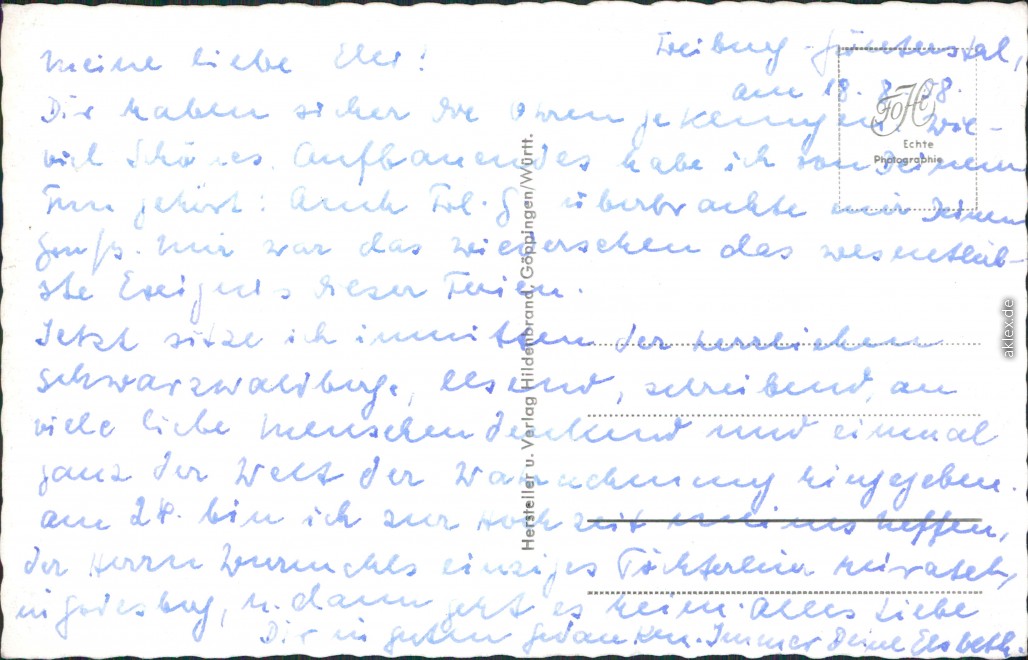 Freiburg-Günterstal,
am 18. 8. 58.
Meine liebe Elli!
Dir haben sicher die Ohren geklungen. Wie-
viel Schönes, Aufbauendes habe ich von Deinem
Tun gehört! Auch Frl. G. überbrachte mir Deinen
Gruß. Mir war das Wiedersehen das wesentlich-
ste Ereignis dieser Ferien.
Jetzt sitze ich inmitten der herrlichen
Schwarzwaldberge, lesend, schreibend, an
viele liebe Menschen denkend und einmal
ganz der Welt der Wahrnehmung hingegeben.
am 24. bin ich zur Hochzeit meines Neffen,
der Herrn einziges Töchterlein heiratet,
in Godesberg, u. dann geht es heim. Alles Liebe
Dir in guten Gedanken. Immer Deine Elsbeth.
FoHi
Echte
Photographie
Hersteller u. Verlag Hildenbrand, Göppingen/Württ.
aklex.de